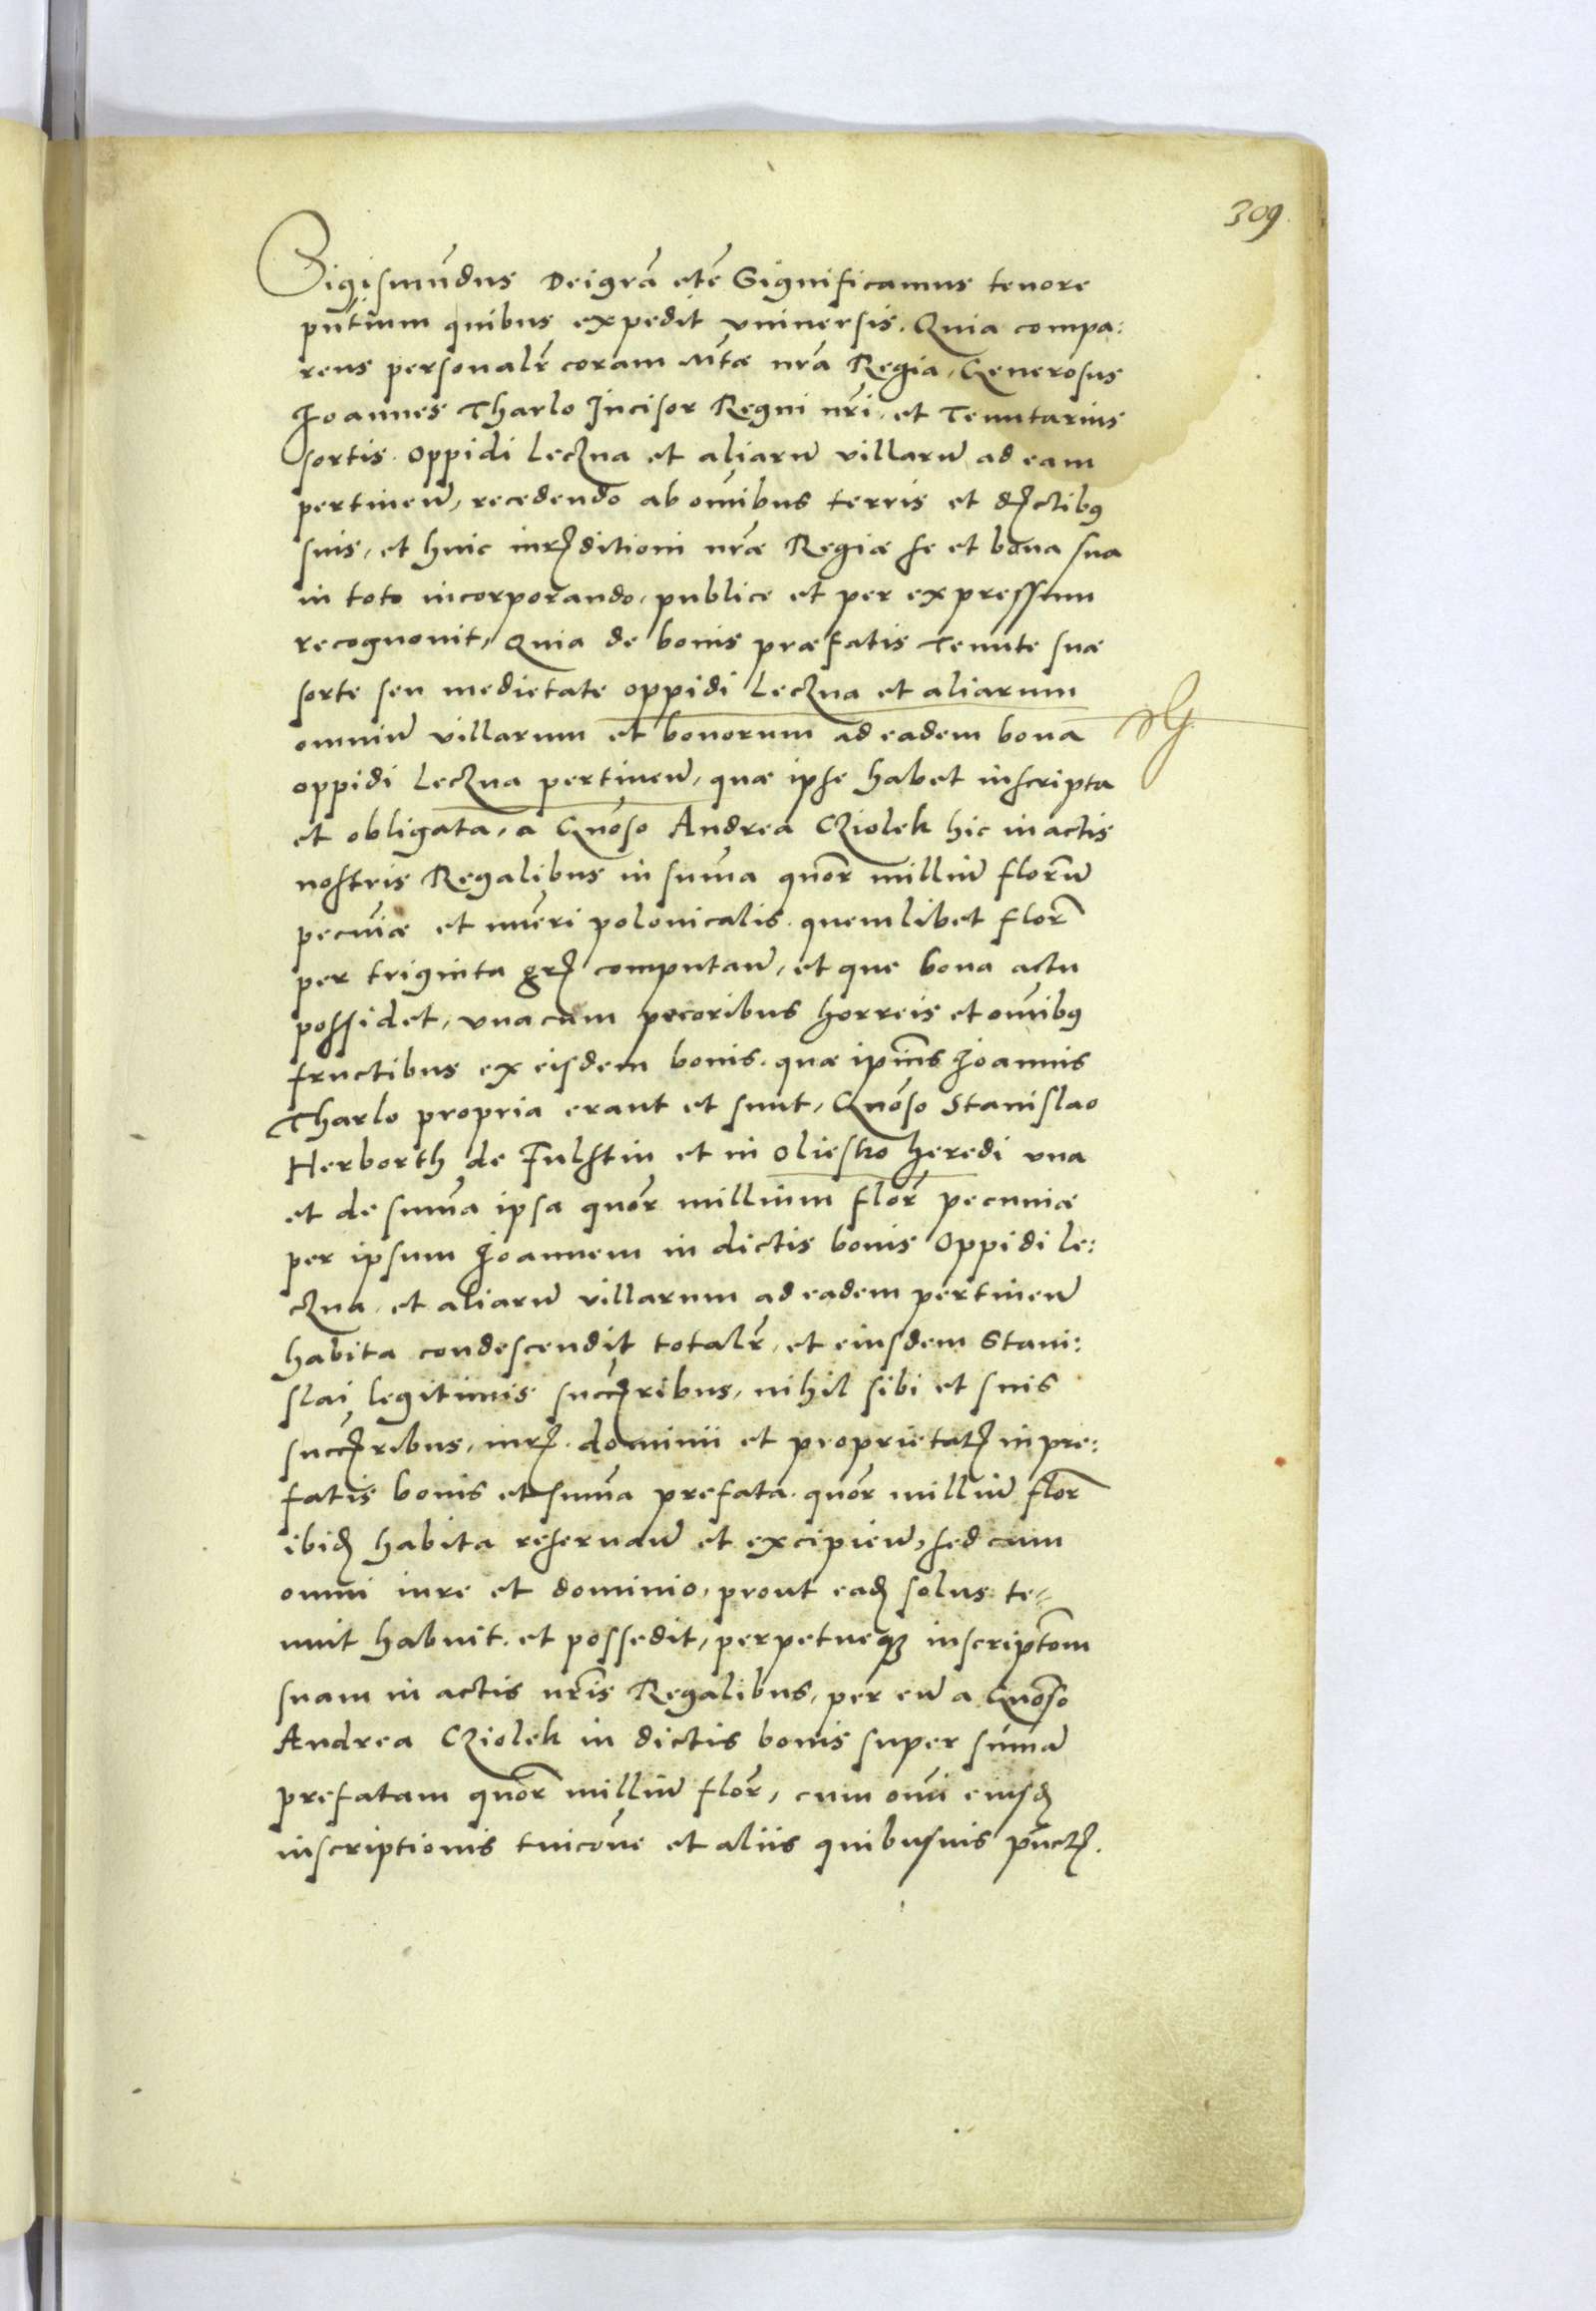 309.
Sigismūdus Dei grā etc̄ Significamus tenore
pn̄tium quibus expedit vniuersis. Quia compa:
rens personalr̄ coram Mt̄e nrā Regia, Generosus
Joannes Tharlo Incisor Regni nrī, et Tenutarius
sortis oppidi Leczna et aliarū villarū ad eam
pertinen̄, recedendo ab om̄ibus terris et dist̄ctibꝰ
suis, et huic iur̄ditioni nrǣ Regiæ se et bona sua
in toto incorporando, publice et per expressum
recognouit, Quia de bonis præfatis Tenute suæ
sorte seu medietate oppidi Leczna et aliarum
omniū villarum et bonorum ad eadem bona
oppidi Leczna pertinen̄, quæ ipse habet inscripta
et obligata, a Gn̄oso Andrea Cziolek hic in actis
nostris Regalibus in sum̄a quor̄ milliū florū
pecuniæ et nūeri polonicalis. quemlibet flor̄
per triginta gr̄ computan̄, et que bona actu
possidet, vna cum pecoribus horreis et om̄ibꝰ
fructibus ex eisdem bonis. quæ ipius̄ Joannis
Tharlo propria erant et sunt, Gn̄oso Stanislao
Herborth de Fulstin et in Oliesko heredi vna
et de sum̄a ipsa quor̄ millium flor̄ pecuniæ
per ipsum Joannem in dictis bonis Oppidi Le:
czna, et aliarū villarum ad eadem pertinen̄
habita condescendit totalr̄, et eiusdem Stani:
slai legitimis succr̄ibus, nihil sibi et suis
succr̄ibus, iur̄. dominii et proprietat̄ in pre:
fatis bonis et sum̄a prefata quor̄ milliū flor̄
ibid̄ habita reseruan̄ et excipien̄, sed cum
omni iure et dominio, prout ead̄ solus te:
nuit habuit. et possedit, perpetueqꝫ inscript̄om
suam in actis nrīs Regalibus, per eū a Gn̄oso
Andrea Cziolek in dictis bonis super sum̄ā
prefatam quor̄ milliū flor̄, cum om̄i eiusd̄
inscriptionis tuicōne et aliis quibusuis pūct̄.